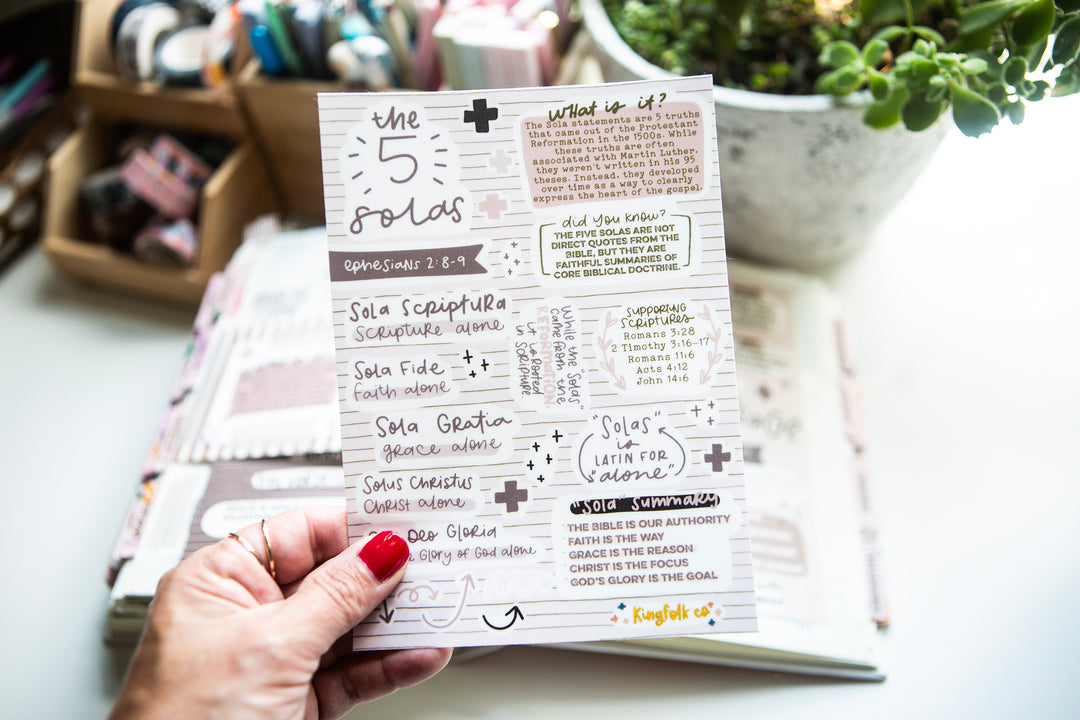 the
5
solas
ephesians 2:8-9
Sola Scriptura
Scripture alone
Sola Fide
Faith alone
Sola Gratia
grace alone
Solus Christus
Christ alone
Deo Gloria
Glory of God alone
What is it?
The Sola statements are 5 truths
that came out of the Protestant
Reformation in the 1500s. While
these truths are often
associated with Martin Luther,
they weren't written in his 95
theses. Instead, they developed
over time as a way to clearly
express the heart of the gospel.
did you know?
THE FIVE SOLAS ARE NOT
DIRECT QUOTES FROM THE
BIBLE, BUT THEY ARE
FAITHFUL SUMMARIES OF
CORE BIBLICAL DOCTRINE.
While the "Solas"
came from the
REFORMATION,
it is rooted
in SCRIPTURE.
SUPPORTING
SCRIPTURES
Romans 3:28
2 Timothy 3:16-17
Romans 11:6
Acts 4:12
John 14:6
"SOLAS"
is
LATIN FOR
"alone"
"Sola" Summary
THE BIBLE IS OUR AUTHORITY
FAITH IS THE WAY
GRACE IS THE REASON
CHRIST IS THE FOCUS
GOD'S GLORY IS THE GOAL
Kingfolk co